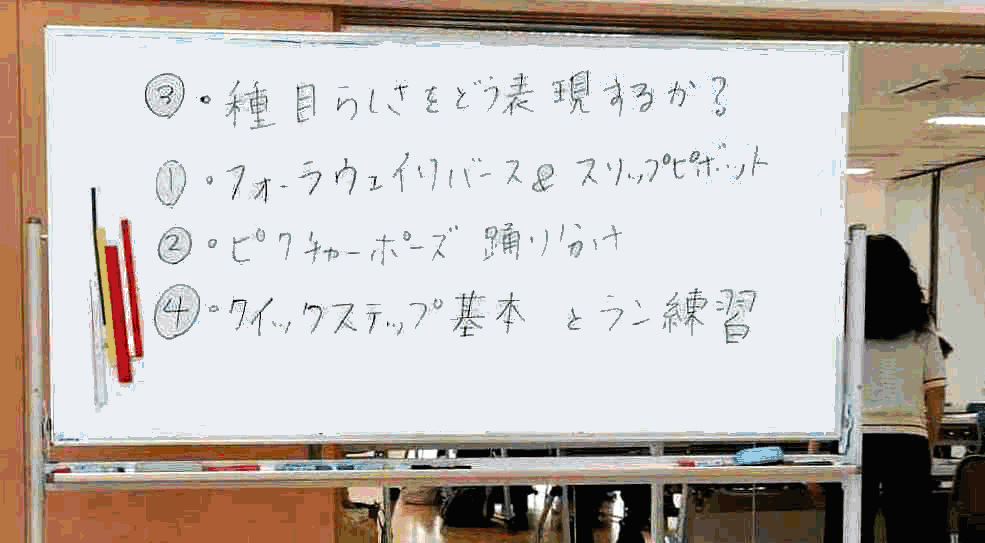 ③・種目らしさをどう表現するか?
①・フォーラウェイリバース&スリップピボット
②・ピクチャーポーズ 踊り分け
④・クイックステップ基本 とラン練習